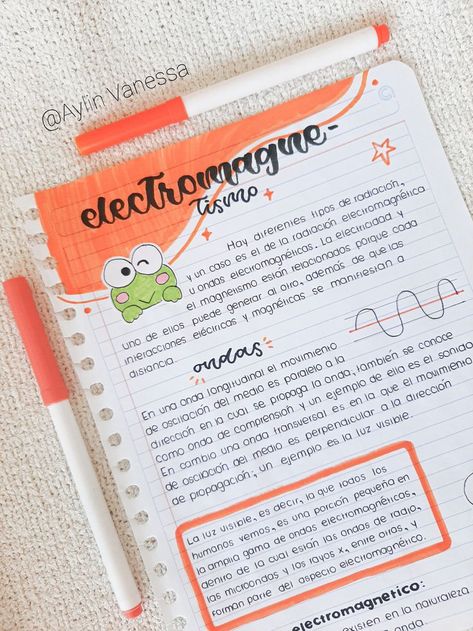 @Aylin Vanessa
electromagne-
tismo
Hay diferentes tipos de radiación,
y un caso es el de la radiación electromagnética
u ondas electromagnéticas. La electricidad y
el magnetismo están relacionados porque cada
uno de ellos puede generar al otro, además de que las
interacciones eléctricas y magnéticas se manifiestan a
distancia.
ondas
En una onda longitudinal el movimiento
de oscilación del medio es paralelo a la
dirección en la cual se propaga la onda, también se conoce
como onda de comprensión y un ejemplo de ella es el sonido.
En cambio una onda transversal es en la que el movimiento
de oscilación del medio es perpendicular a la dirección
de propagación; un ejemplo es la luz visible.
La luz visible, es decir, la que todos los
humanos vemos, es una porción pequeña en
la amplia gama de ondas electromagnéticas,
dentro de la cual están las ondas de radio,
las microondas y los rayos x, entre otras, y
forman parte del aspecto electromagnético.
electromagnetico:
existen en la naturaleza